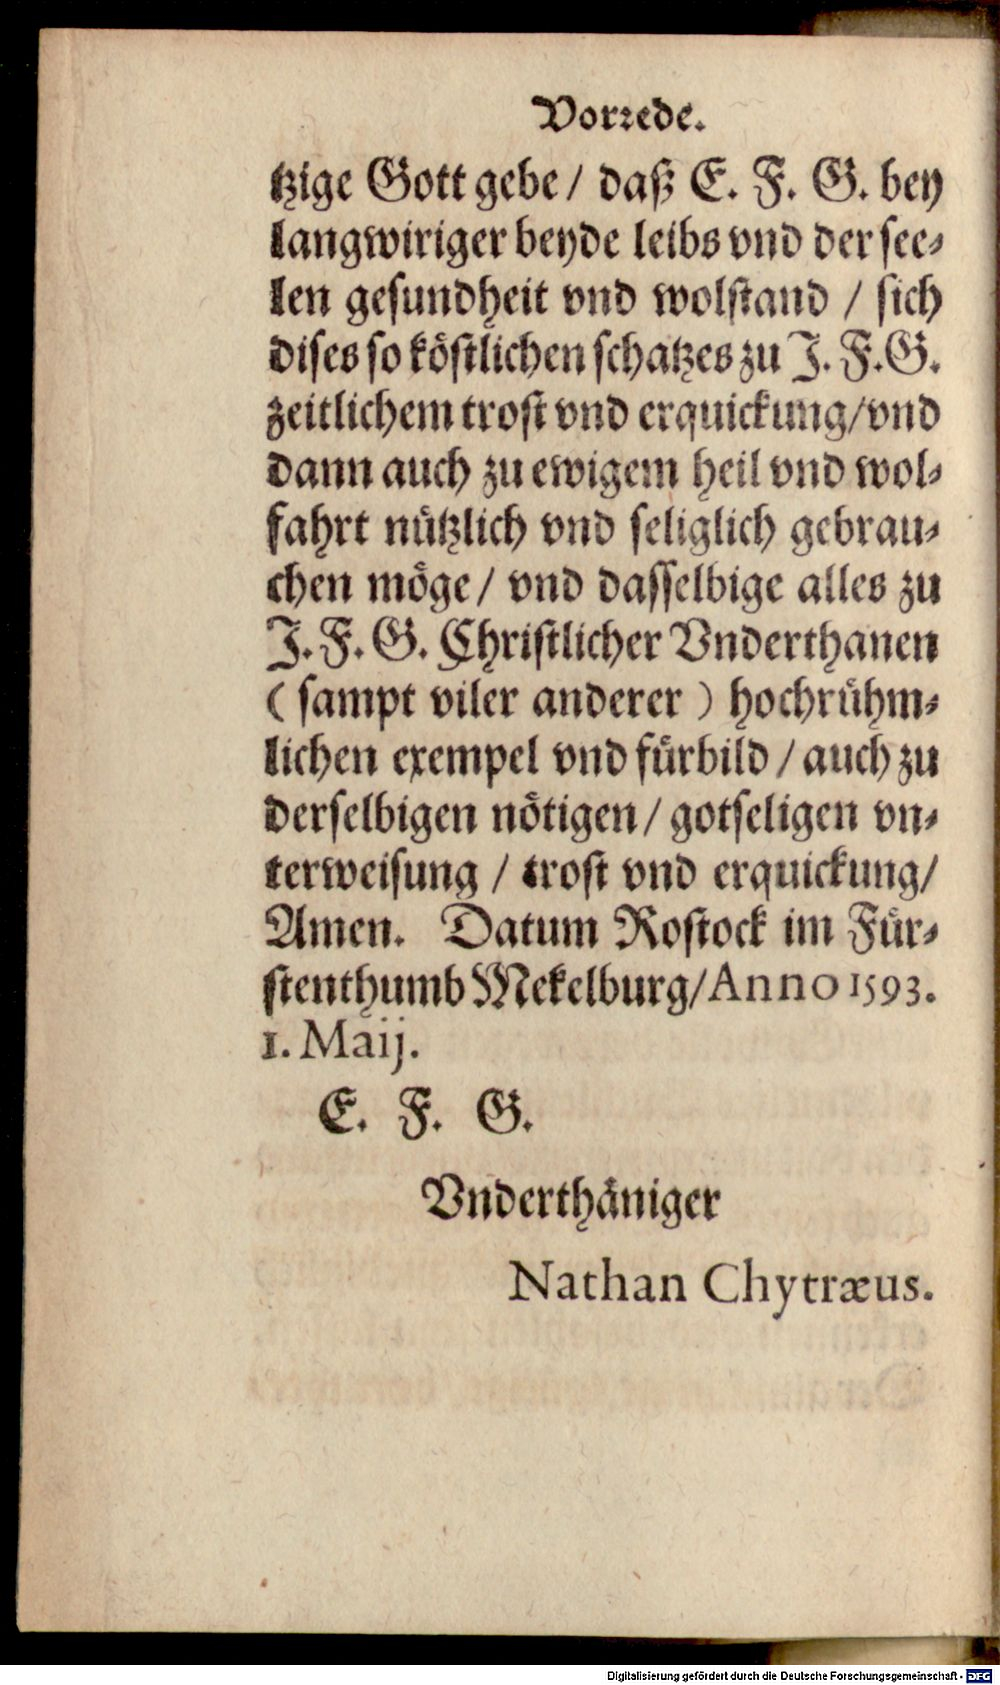 Vorrede.
tzige Gott gebe / daß E. F. G. bey
langwiriger beyde leibs vnd der see-
len gesundheit vnd wolstand / sich
dises so köstlichen schatzes zu J. F. G.
zeitlichem trost vnd erquickung/vnd
dann auch zu ewigem heil vnd wol-
fahrt nützlich vnd seliglich gebrau-
chen möge / vnd dasselbige alles zu
J. F. G. Christlicher Vnderthanen
( sampt viler anderer ) hochrühm-
lichen exempel vnd fürbild / auch zu
derselbigen nötigen / gotseligen vn-
terweisung / trost vnd erquickung/
Amen. Datum Rostock im Für-
stenthumb Mekelburg/Anno 1593.
1. Maij.
E. F. G.
Vnderthäniger
Nathan Chytræus.
Digitalisierung gefördert durch die Deutsche Forschungsgemeinschaft - DFG